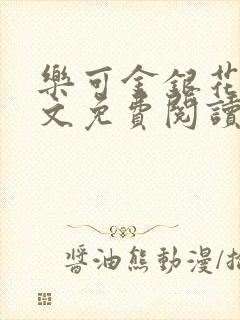 樂可金銀花
文免費閱讀
醬油熊動漫/插